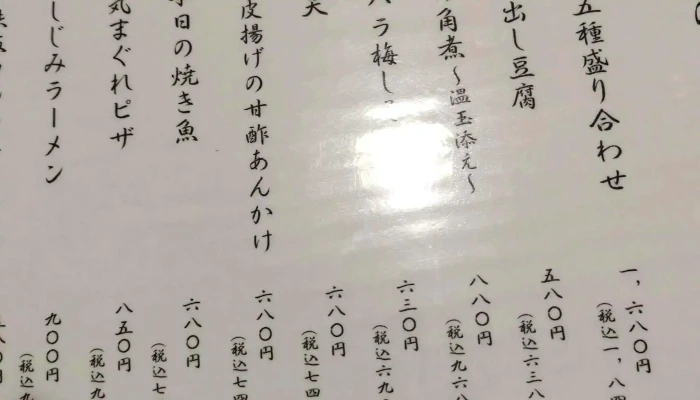 五種盛り合わせ
一,六八〇円
(税込一,八四
出し豆腐
五八〇円
(税込六三八
角煮~温玉添え~
八八〇円
(税込九六八
バラ梅し
六三〇円
(税込六九
天
六八〇円
(税込七四
皮揚げの甘酢あんかけ
六八〇円
(税込七四
日の焼き魚
六八〇円
(税込七
気まぐれピザ
八五〇円
(税込九
しじみラーメン
九〇〇円
(税込九
八〇円